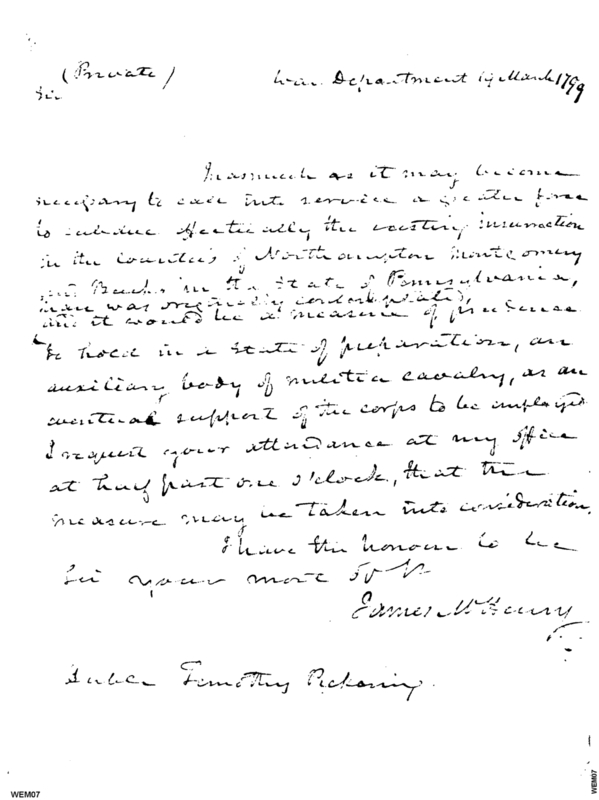 (Private) War Department 19 March 1799
Sir
Inasmuch as it may become
necessary to call into service a greater force
to subdue effectually the existing insurrection
in the counties of Northampton Montgomery
and Bucks in the State of Pennsylvania,
than was originally contemplated,
and it would be a measure of prudence
to hold in a state of preparation, an
auxiliary body of militia cavalry, as an
eventual support of the corps to be employed
I request your attendance at my office
at half past one o'clock, that the
measure may be taken into consideration.
I have the honour to be
Sir your most
James McHenry
Timothy Pickering.
WEM07
WEM07